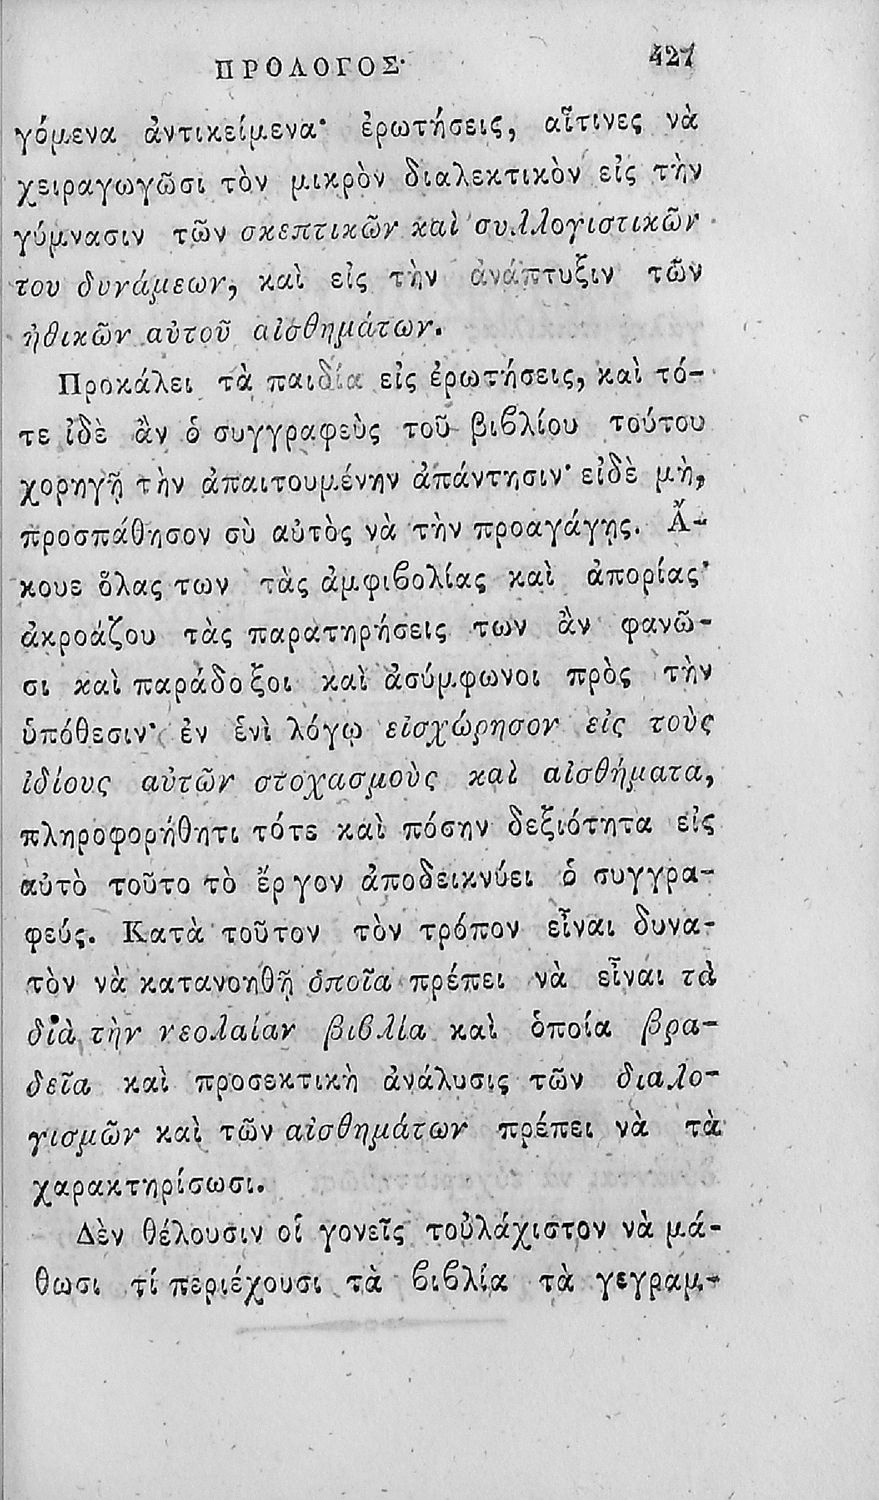 ΠΡΟΛΟΓΟΣ· 427
γόμενα ἀντικείμενα· ἐρωτήσεις, αἵτινες νὰ
χειραγωγῶσι τὸν μικρὸν διαλεκτικὸν εἰς τὴν
γύμνασιν τῶν σκεπτικῶν καὶ συλλογιστικῶν
του δυνάμεων, καὶ εἰς τὴν ἀνάπτυξιν τῶν
ἠθικῶν αὐτοῦ αἰσθημάτων.
Προκάλει τὰ παιδία εἰς ἐρωτήσεις, καὶ τό-
τε ἰδὲ ἂν ὁ συγγραφεὺς τοῦ βιϐλίου τούτου
χορηγῇ τὴν ἀπαιτουμένην ἀπάντησιν· εἰδὲ μὴ,
προσπάθησον σὺ αὐτὸς νὰ τὴν προαγάγῃς. Ἄ-
κουε ὅλας των τὰς ἀμφιϐολίας καὶ ἀπορίας·
ἀκροάζου τὰς παρατηρήσεις των ἂν φανῶ-
σι καὶ παράδοξοι καὶ ἀσύμφωνοι πρὸς τὴν
ὑπόθεσιν· ἐν ἑνὶ λόγῳ εἰσχώρησον εἰς τοὺς
ἰδίους αὐτῶν στοχασμοὺς καὶ αἰσθήματα,
πληροφορήθητι τότε καὶ πόσην δεξιότητα εἰς
αὐτὸ τοῦτο τὸ ἔργον ἀποδεικνύει ὁ συγγρα-
φεύς. Κατὰ τοῦτον τὸν τρόπον εἶναι δυνα-
τὸν νὰ κατανοηθῇ ὁποῖα πρέπει νὰ εἶναι τὰ
διὰ τὴν νεολαίαν βιβλία καὶ ὁποία βρα-
δεῖα καὶ προσεκτικὴ ἀνάλυσις τῶν διαλο-
γισμῶν καὶ τῶν αἰσθημάτων πρέπει νὰ τὰ
χαρακτηρίσωσι.
Δὲν θέλουσιν οἱ γονεῖς τοὐλάχιστον νὰ μά-
θωσι τί περιέχουσι τὰ ϐιϐλία τὰ γεγραμ-